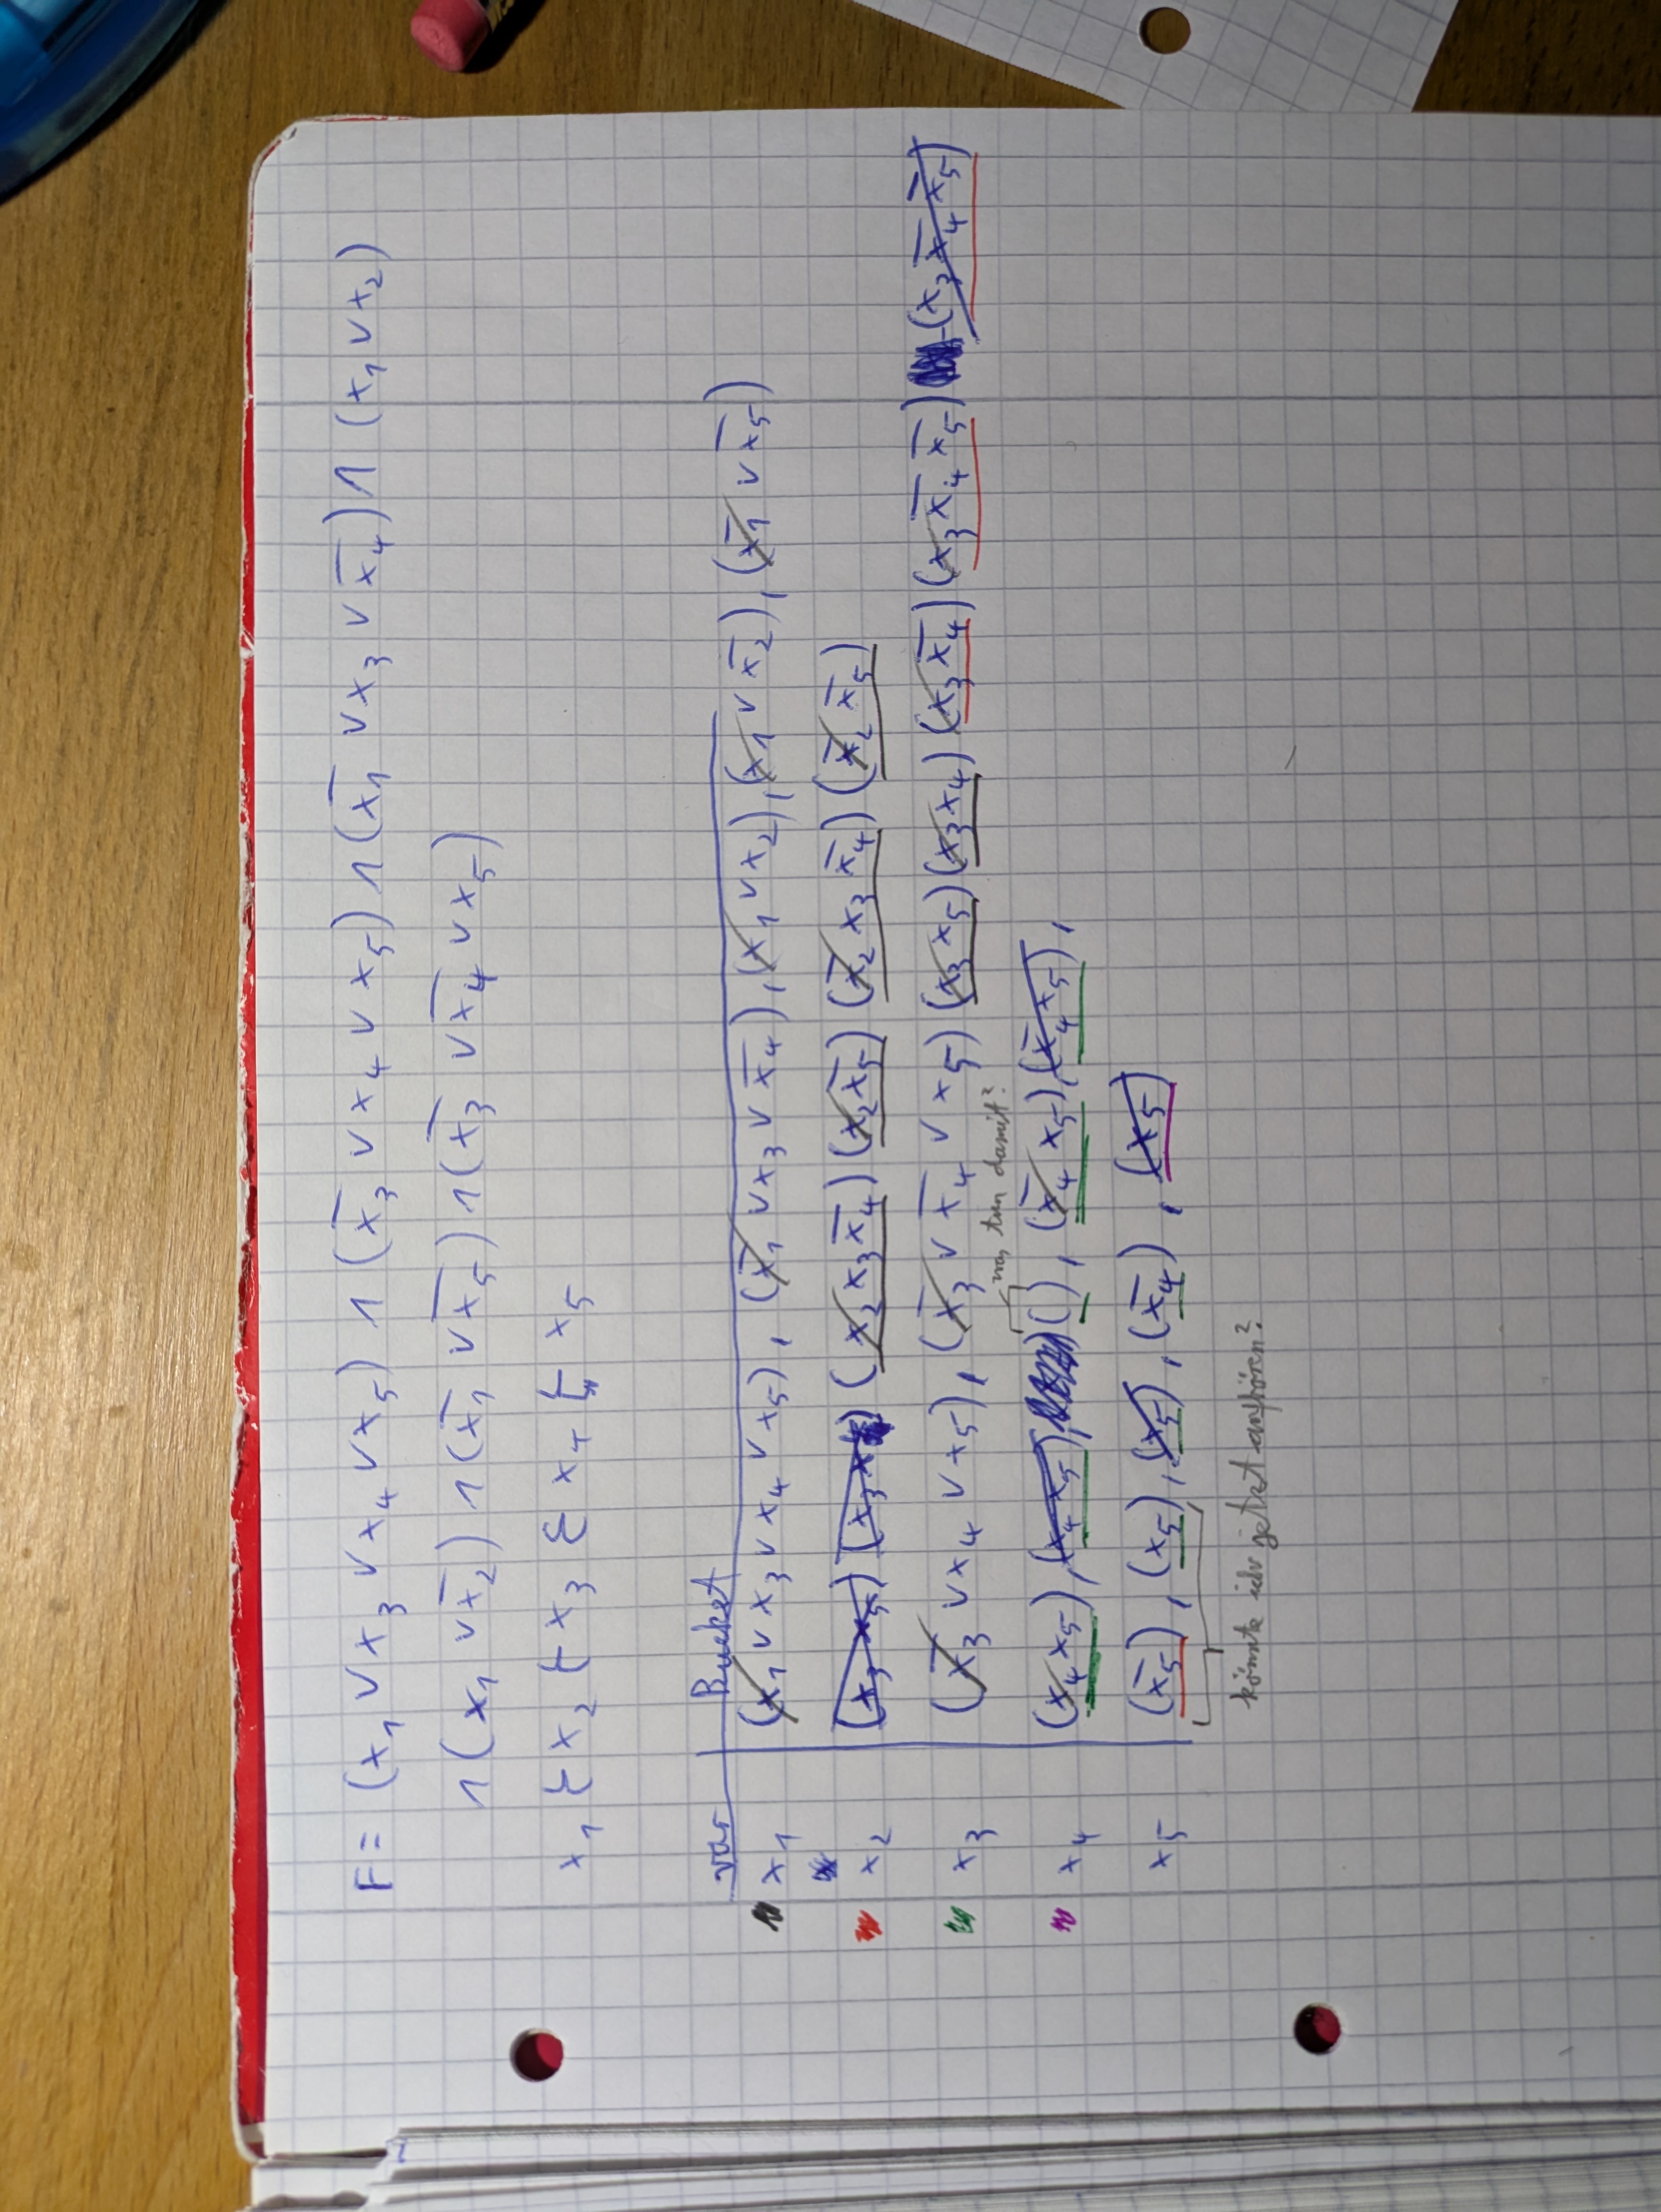 F = (x₁ ∨ x₃ ∨ x₄ ∨ x₅) ∧ (x̅₃ ∨ x₄ ∨ x₅) ∧ (x̅₁ ∨ x₃ ∨ x̅₄) ∧ (x₁ ∨ x₂)
∧ (x₁ ∨ x̅₂) ∧ (x̅₁ ∨ x̅₅) ∧ (x̅₃ ∨ x̅₄ ∨ x₅)
x₁ { x₂ { x₃ { x₄ { x₅
var Bucket
x₁ (x₁ ∨ x₃ ∨ x₄ ∨ x₅), (x̅₁ ∨ x₃ ∨ x̅₄), (x₁ ∨ x₂), (x₁ ∨ x̅₂), (x̅₁ ∨ x̅₅)
x₂ (x₃ x₅) (x₂ x₃ x̅₄) (x₂ x̅₅) (x̅₂ x₃ x̅₄) (x̅₂ x̅₅)
x₃ (x̅₃ ∨ x₄ ∨ x₅), (x̅₃ ∨ x̅₄ ∨ x₅) (x₃ x₅) (x₃ x₄) (x₃ x̅₄) (x₃ x̅₄ x̅₅) (x₃ x̅₄ x̅₅)
was tun damit?
x₄ (x₄ x₅), (x₄ x₅), ( ), (x̅₄ x₅), (x̅₄ x₅),
x₅ (x̅₅), (x₅), (x₅), (x̅₄), (x₅)
könnte ich jetzt aufhören?